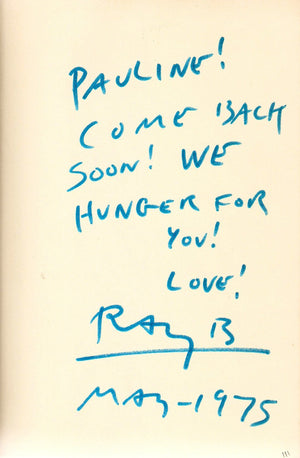 PAULINE!
COME BACK
SOON! WE
HUNGER FOR
YOU!
LOVE!
RAY B
MAY-1975